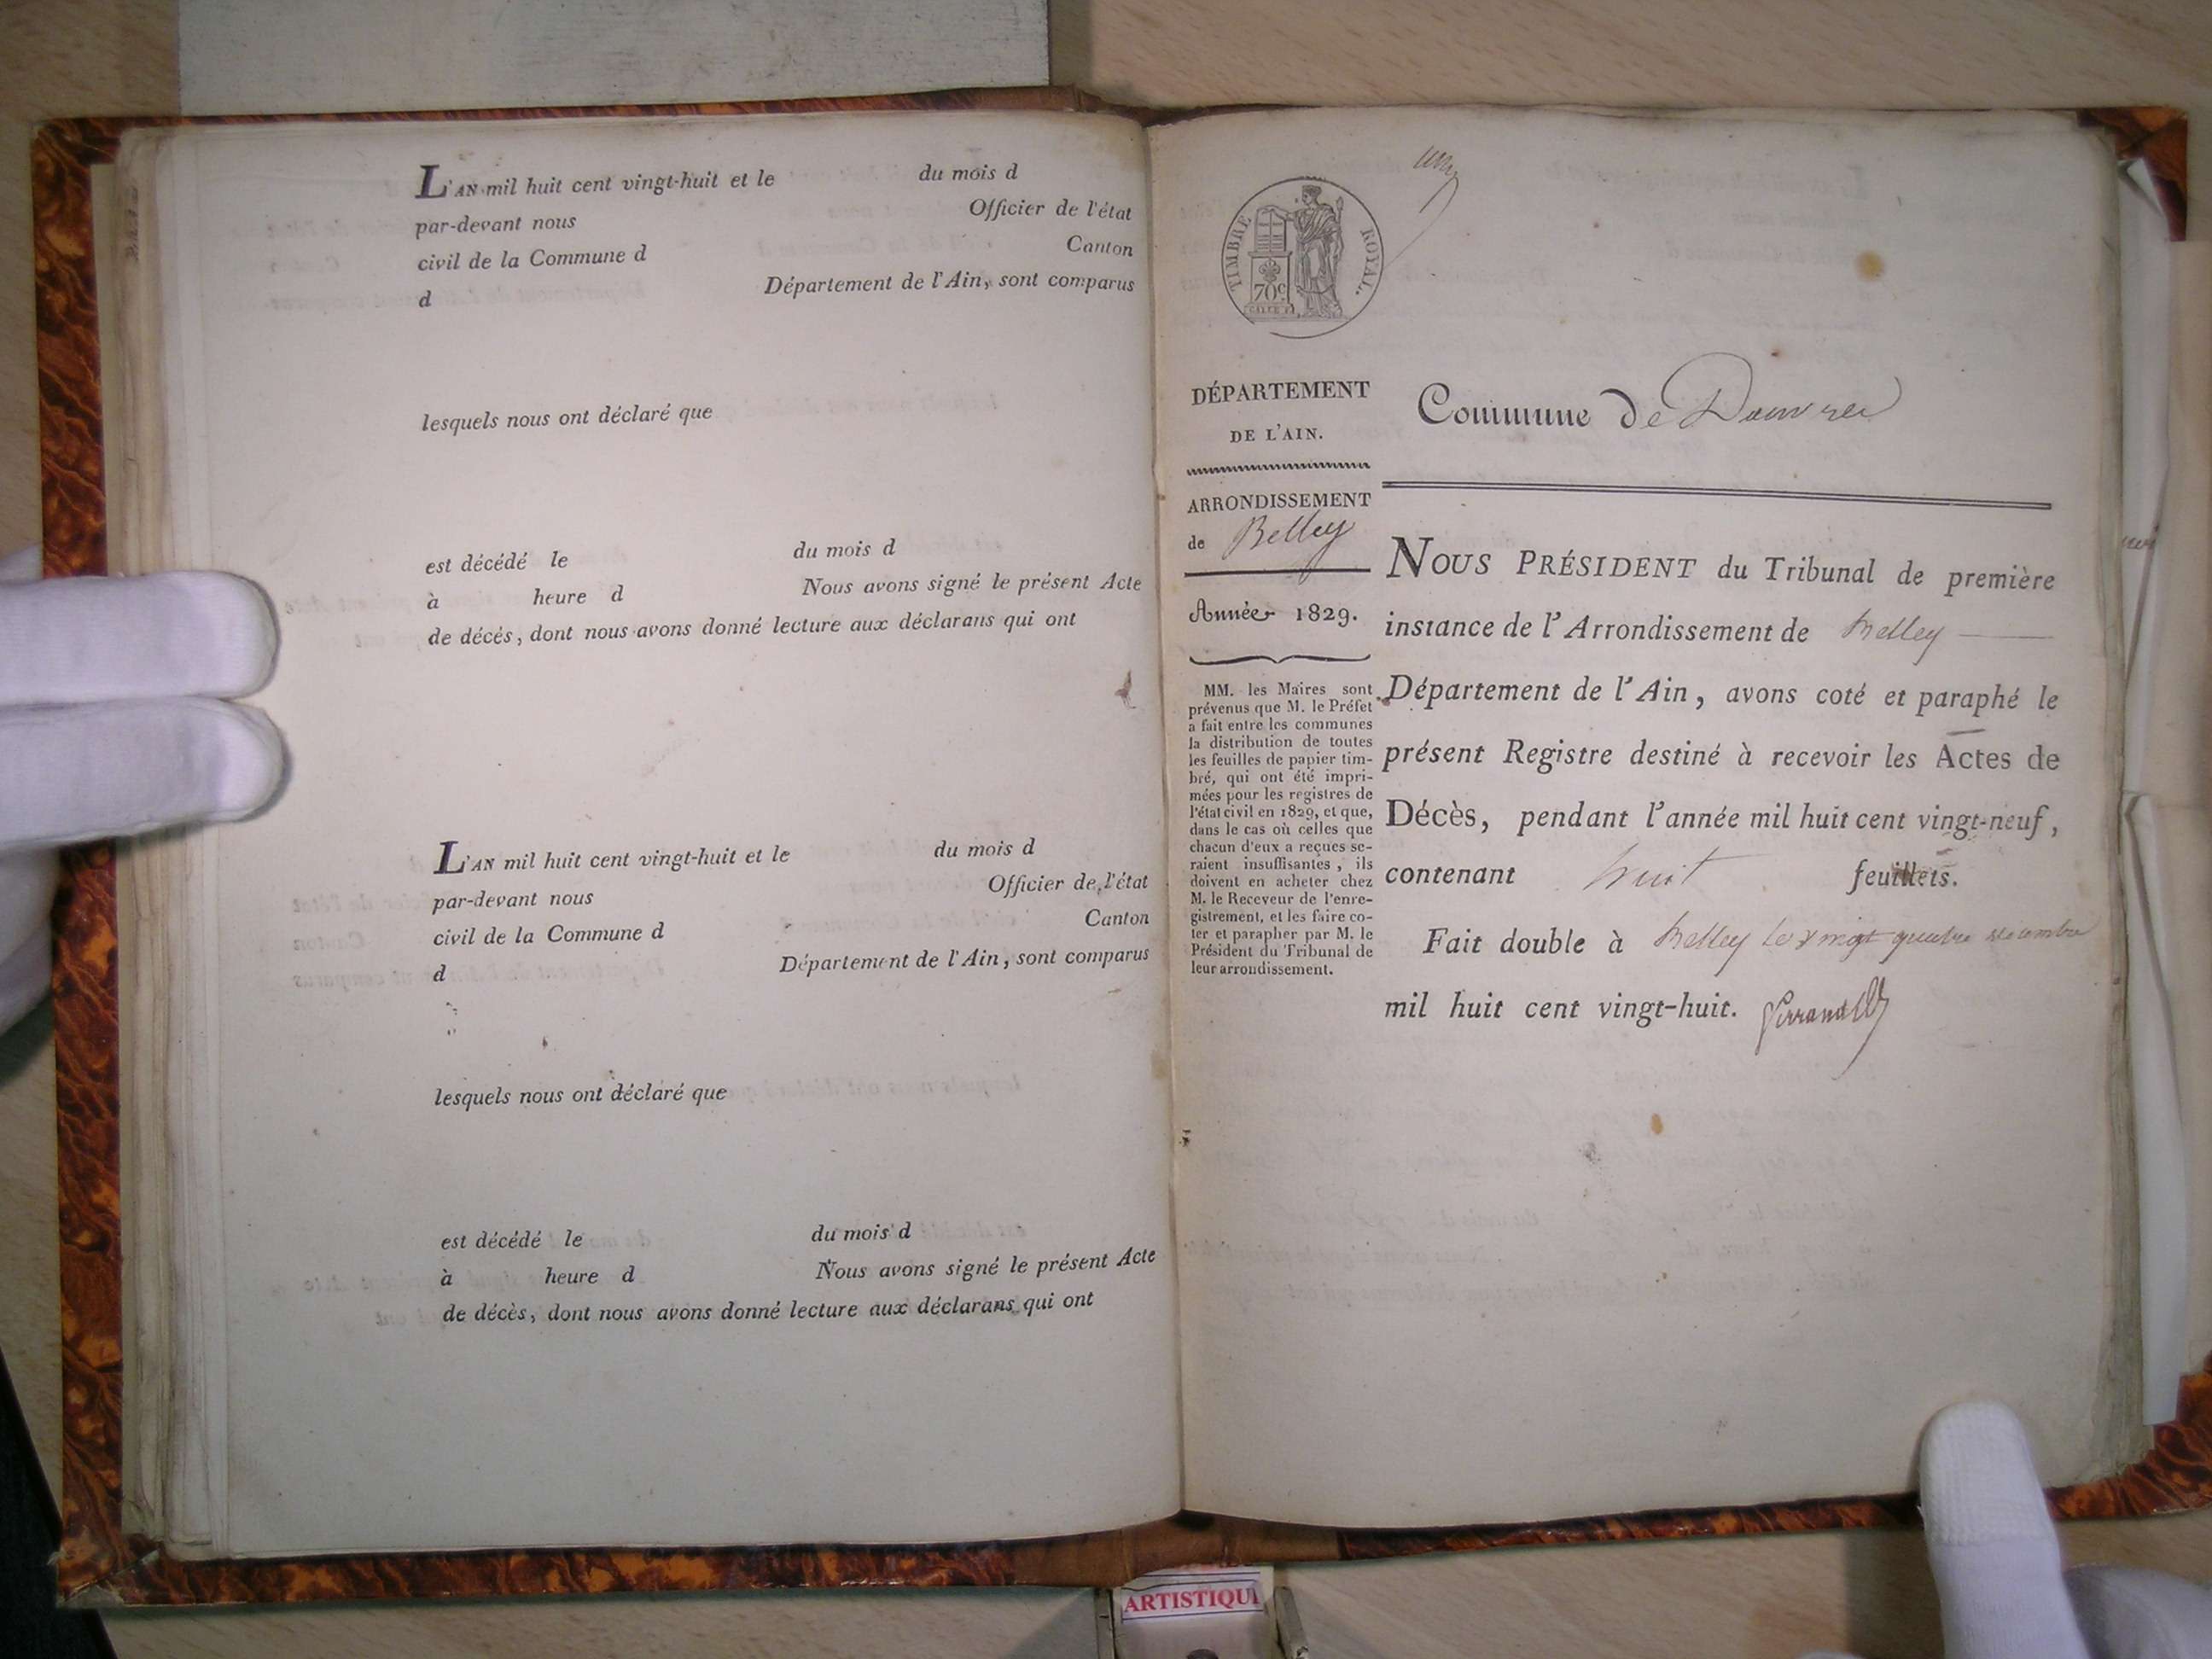 L'AN mil huit cent vingt-huit et le du mois d
par-devant nous Officier de l'état
civil de la Commune d Canton
d Département de l'Ain, sont comparus
lesquels nous ont déclaré que
est décédé le du mois d
à heure d Nous avons signé le présent Acte
de décés, dont nous avons donné lecture aux déclarans qui ont
L'AN mil huit cent vingt-huit et le du mois d
par-devant nous Officier de l'état
civil de la Commune d Canton
d Département de l'Ain, sont comparus
lesquels nous ont déclaré que
est décédé le du mois d
à heure d Nous avons signé le présent Acte
de décès, dont nous avons donné lecture aux déclarans qui ont
TIMBRE ROYAL.
70c
DÉPARTEMENT
DE L'AIN.
ARRONDISSEMENT
de Belley
Année 1829.
MM. les Maires sont
prévenus que M. le Préfet
a fait entre les communes
la distribution de toutes
les feuilles de papier tim-
bré, qui ont été impri-
mées pour les registres de
l'état civil en 1829, et que,
dans le cas où celles que
chacun d'eux a reçues se-
raient insuffisantes, ils
doivent en acheter chez
M. le Receveur de l'enre-
gistrement, et les faire co-
ter et parapher par M. le
Président du Tribunal de
leur arrondissement.
Commune de Douvres
NOUS PRÉSIDENT du Tribunal de première
instance de l'Arrondissement de Belley
Département de l'Ain, avons coté et paraphé le
présent Registre destiné à recevoir les Actes de
Décès, pendant l'année mil huit cent vingt-neuf,
contenant huit feuillets.
Fait double à Belley le vingt quatre décembre
mil huit cent vingt-huit.
ARTISTIQU